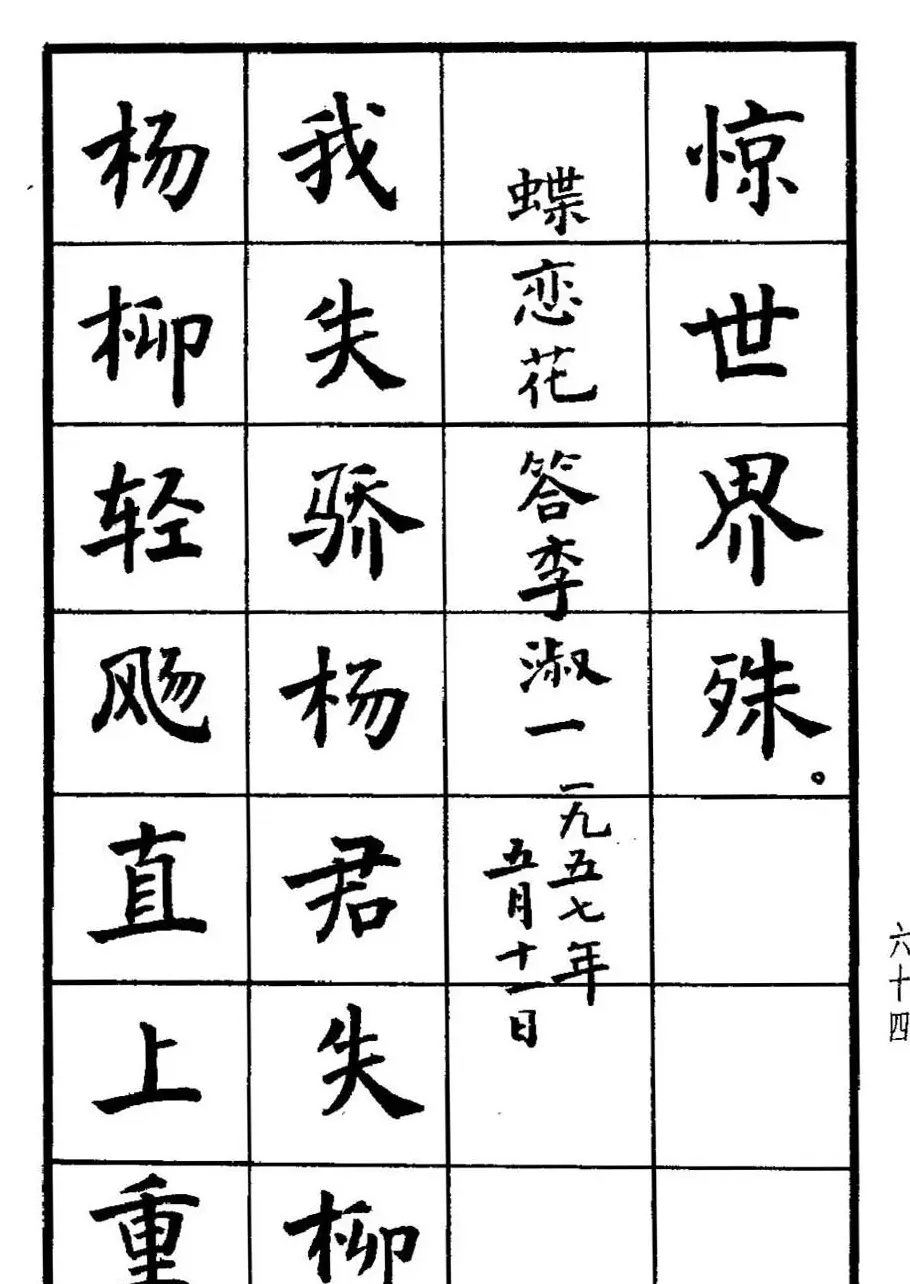 惊世界殊。
蝶恋花 答李淑一 一九五七年
五月十一日
我失骄杨君失柳
杨柳轻飏直上重
六十四